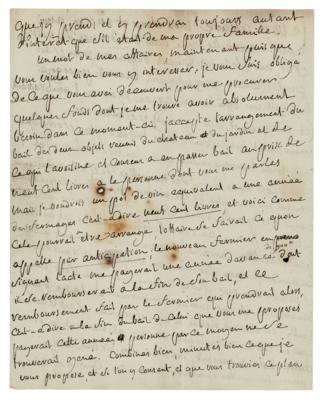 que j'y prends et y prendrai toujours autant
d'interet que s'il etait de ma propre famille.
un mot de mes affaires maintenant puis que
vous voulez bien vous y interesser, je vous suis obligé
de ce que vous avez découvert pour me procurer
quelques fonds dont je me trouve avoir absolument
besoin dans ce moment-ci, j'accepte l'arrangement du
bail des deux objets reunis du chateau et du jardin et de
ce qui l'avoisine et consens a en passer bail au prix de
neuf cent livres a la personne dont vous me parlez
mais je voudrois un pot de vin equivalent a une année
de fermages c'est-adire neuf cent livres et voici comme
cela pourrait etre arrangé l'affaire se ferait ce qu'on
appelle par anticipation; le nouveau fermier en
signant l'acte me payerait une année d'avance dont
il se rembourserait a la fin de son bail, et ce
remboursement fait par le fermier qui prendrait alors,
c'est-adire a la fin du bail de celui que vous me proposez
payerait cette année, personne par ce moyen ne se
trouverait gené. Combinez bien, minutez bien ce que je
vous propose, et si l'on y consent, et que vous trouviez ce plan